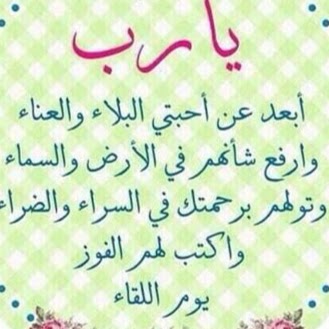 يارب
أبعد عن أحبتي البلاء والعناء
وارفع شأنهم في الأرض والسماء
وتولهم برحمتك في السراء والضراء
واكتب لهم الفوز
يوم اللقاء